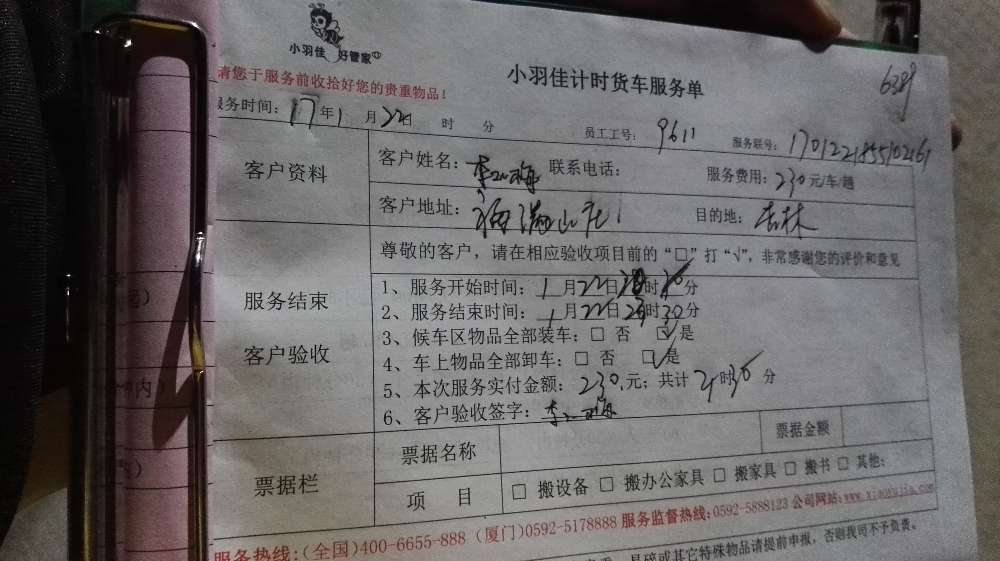 小羽佳 好管家
小羽佳计时货车服务单
6389
请您于服务前收拾好您的贵重物品!
服务时间: 17年1月22日 时 分 员工工号: 9611 服务联号:
客户资料
客户姓名: 联系电话: 服务费用: 230元/车/趟
客户地址: 目的地: 杏林
尊敬的客户,请在相应验收项目前的“□”打“√”,非常感谢您的评价和意见
服务结束
客户验收
1、服务开始时间: 1月22日 时 分
2、服务结束时间: 1月22日 时30分
3、候车区物品全部装车: □ 否 ☑ 是
4、车上物品全部卸车: □ 否 ☑ 是
5、本次服务实付金额: 230.元; 共计 时30分
6、客户验收签字:
票据栏
票据名称 票据金额
项 目 □ 搬设备 □ 搬办公家具 □ 搬家具 □ 搬书 □ 其他:
服务热线:(全国)400-6655-888 (厦门)0592-5178888 服务监督热线:0592-5888123 公司网站:www.xiaoyujia.com
易碎或其它特殊物品请提前申报,否则我司不予负责。